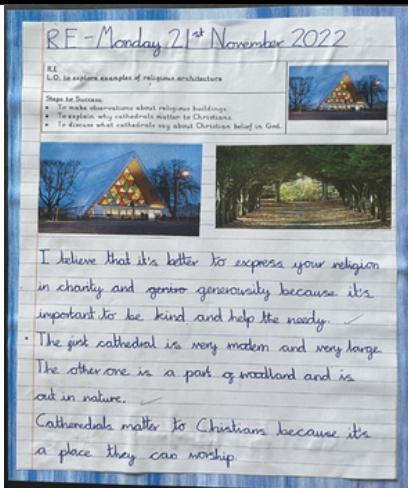 RE - Monday 21st November 2022
RE
L.O. to explore examples of religious architecture
Steps to Success:
• To make observations about religious buildings.
• To explain why cathedrals matter to Christians.
• To discuss what cathedrals say about Christian belief in God.
I believe that it's better to express your religion
in charity and gentro generousity because it's
important to be kind and help the needy.
• The first cathedral is very modern and very large
The other one is a part of woodland and is
out in nature.
Catheredrals matter to Christians because it's
a place they can worship.